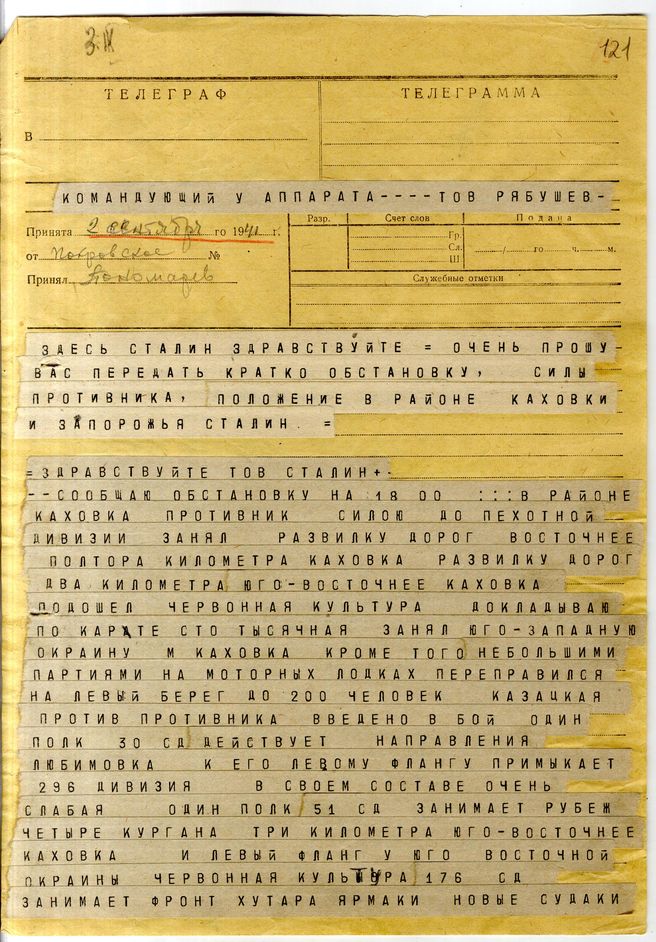 3.IX
121
ТЕЛЕГРАФ
ТЕЛЕГРАММА
В
КОМАНДУЮЩИЙ У АППАРАТА----ТОВ РЯБУШЕВ-
Принята 2 сентября го 1941 г.
от Покровское №
Принял Пономарев
Разр.
Счет слов
Подана
Гр.
Сл.
Ш
/ го ч. м.
Служебные отметки
ЗДЕСЬ СТАЛИН ЗДРАВСТВУЙТЕ = ОЧЕНЬ ПРОШУ
ВАС ПЕРЕДАТЬ КРАТКО ОБСТАНОВКУ, СИЛЫ
ПРОТИВНИКА, ПОЛОЖЕНИЕ В РАЙОНЕ КАХОВКИ
И ЗАПОРОЖЬЯ СТАЛИН. =
=ЗДРАВСТВУЙТЕ ТОВ СТАЛИН+-
--СООБЩАЮ ОБСТАНОВКУ НА 18 00 :::В РАЙОНЕ
КАХОВКА ПРОТИВНИК СИЛОЮ ДО ПЕХОТНОЙ
ДИВИЗИИ ЗАНЯЛ РАЗВИЛКУ ДОРОГ ВОСТОЧНЕЕ
ПОЛТОРА КИЛОМЕТРА КАХОВКА РАЗВИЛКУ ДОРОГ
ДВА КИЛОМЕТРА ЮГО-ВОСТОЧНЕЕ КАХОВКА
ПОДОШЕЛ ЧЕРВОННАЯ КУЛЬТУРА ДОКЛАДЫВАЮ
ПО КАРАТЕ СТО ТЫСЯЧНАЯ ЗАНЯЛ ЮГО-ЗАПАДНУЮ
ОКРАИНУ М КАХОВКА КРОМЕ ТОГО НЕБОЛЬШИМИ
ПАРТИЯМИ НА МОТОРНЫХ ЛОДКАХ ПЕРЕПРАВИЛСЯ
НА ЛЕВЫЙ БЕРЕГ ДО 200 ЧЕЛОВЕК КАЗАЦКАЯ
ПРОТИВ ПРОТИВНИКА ВВЕДЕНО В БОЙ ОДИН
ПОЛК 30 СД ДЕЙСТВУЕТ НАПРАВЛЕНИЯ
ЛЮБИМОВКА К ЕГО ЛЕВОМУ ФЛАНГУ ПРИМЫКАЕТ
296 ДИВИЗИЯ В СВОЕМ СОСТАВЕ ОЧЕНЬ
СЛАБАЯ ОДИН ПОЛК 51 СД ЗАНИМАЕТ РУБЕЖ
ЧЕТЫРЕ КУРГАНА ТРИ КИЛОМЕТРА ЮГО-ВОСТОЧНЕЕ
КАХОВКА И ЛЕВЫЙ ФЛАНГ У ЮГО ВОСТОЧНОЙ
ОКРАИНЫ ЧЕРВОННАЯ КУЛЬТУРА 176 СД
ЗАНИМАЕТ ФРОНТ ХУТАРА ЯРМАКИ НОВЫЕ СУДАКИ